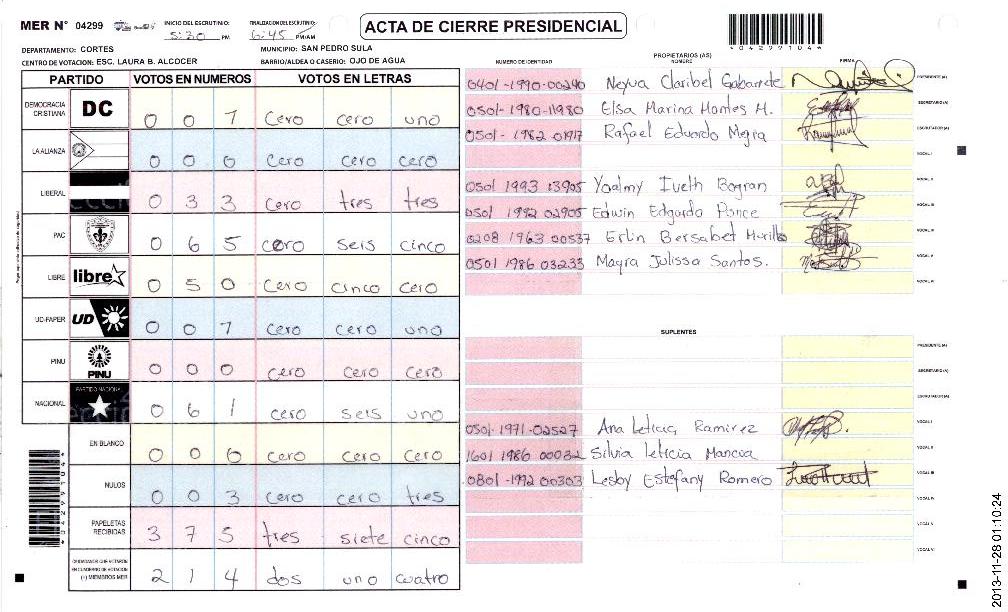 MER N° 04299
INICIO DEL ESCRUTINIO: 5:30 PM
FINALIZACION DEL ESCRUTINIO: 6:45 PM/AM
ACTA DE CIERRE PRESIDENCIAL
04299104
DEPARTAMENTO: CORTES
MUNICIPIO: SAN PEDRO SULA
CENTRO DE VOTACION: ESC. LAURA B. ALCOCER
BARRIO/ALDEA O CASERIO: OJO DE AGUA
PARTIDO VOTOS EN NUMEROS VOTOS EN LETRAS
DEMOCRACIA CRISTIANA DC 0 0 1 cero cero uno
LA ALIANZA 0 0 0 cero cero cero
LIBERAL 0 3 3 cero tres tres
PAC 0 6 5 cero seis cinco
LIBRE libre 0 5 0 cero cinco cero
UD-FAPER UD 0 0 1 cero cero uno
PINU PINU 0 0 0 cero cero cero
NACIONAL PARTIDO NACIONAL 0 6 1 cero seis uno
EN BLANCO 0 0 0 cero cero cero
NULOS 0 0 3 cero cero tres
PAPELETAS RECIBIDAS 3 7 5 tres siete cinco
CIUDADANOS QUE VOTARON EN CUADERNO DE VOTACION (+) MIEMBROS MER 2 1 4 dos uno cuatro
PROPIETARIOS (AS)
NUMERO DE IDENTIDAD NOMBRE FIRMA
0401-1990-00240 PRESIDENTE (A)
0501-1980-11980 Elsa Marina Montes H. SECRETARIO (A)
0501-1982-01917 Rafael Eduardo Mejra ESCRUTADOR (A)
VOCAL I
0501 1993 13905 Yoalmy Iveth Bogran VOCAL II
0501 1992 02905 Edwin Edgardo Ponce VOCAL III
0208 1963 00537 Erlin Bersabet Murillo VOCAL IV
0501 1986 03233 Mayra Julissa Santos. VOCAL V
VOCAL VI
SUPLENTES
PRESIDENTE (A)
SECRETARIO (A)
ESCRUTADOR (A)
0501-1971-02527 Ana Leticia Ramirez VOCAL I
1601 1986 00032 Silvia Leticia Mancia VOCAL II
0801-1992 00303 Lesby Estefany Romero VOCAL III
VOCAL IV
VOCAL V
VOCAL VI
2013-11-28 01:10:24